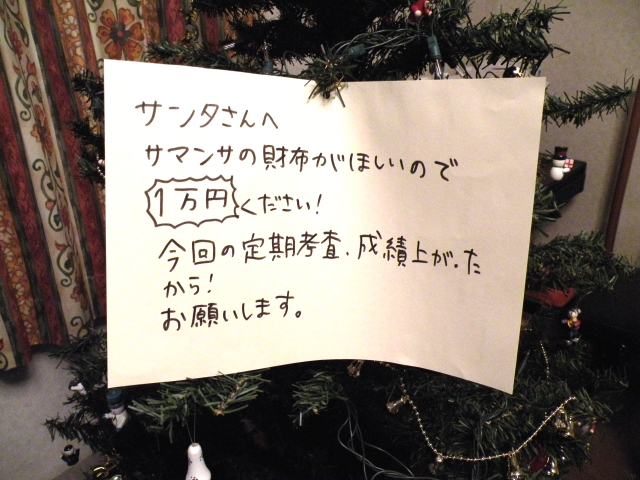 サンタさんへ
サマンサの財布がほしいので
1万円ください!
今回の定期考査、成績上がった
から!
お願いします。